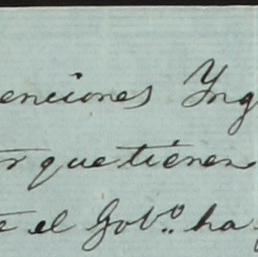 enciones Yng
r que tienen
e el Gobº. ha